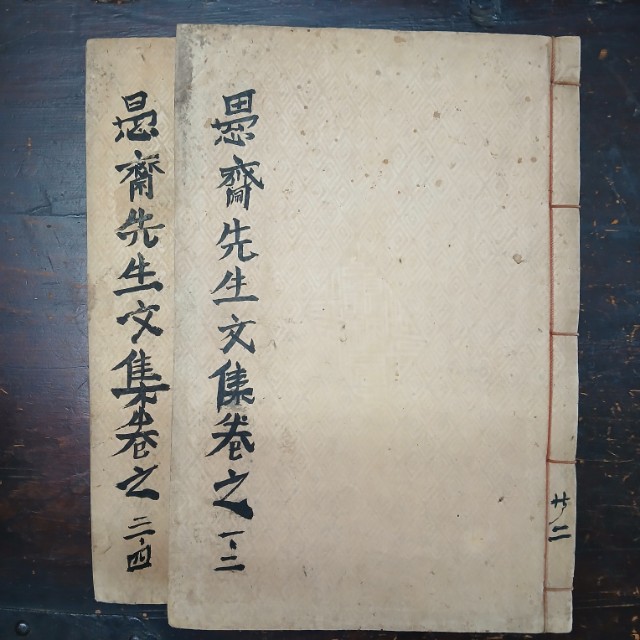 共二
愚齋先生文集卷之一·二
愚齋先生文集卷之三·四